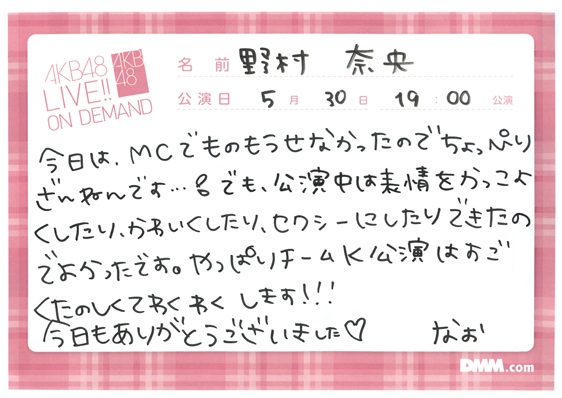 AKB48
LIVE!!
ON DEMAND
AKB
48
名 前 野村 奈央
公演日 5 月 30 日 19 : 00 公演
今日は、MCでものもうせなかったのでちょっぴり
ざんねんです…でも、公演中は表情をかっこよ
くしたり、かわいくしたり、セクシーにしたりできたの
でよかったです。やっぱりチームK公演はすご
くたのしくてわくわくします!!!
今日もありがとうございました♡ なお
DMM.com